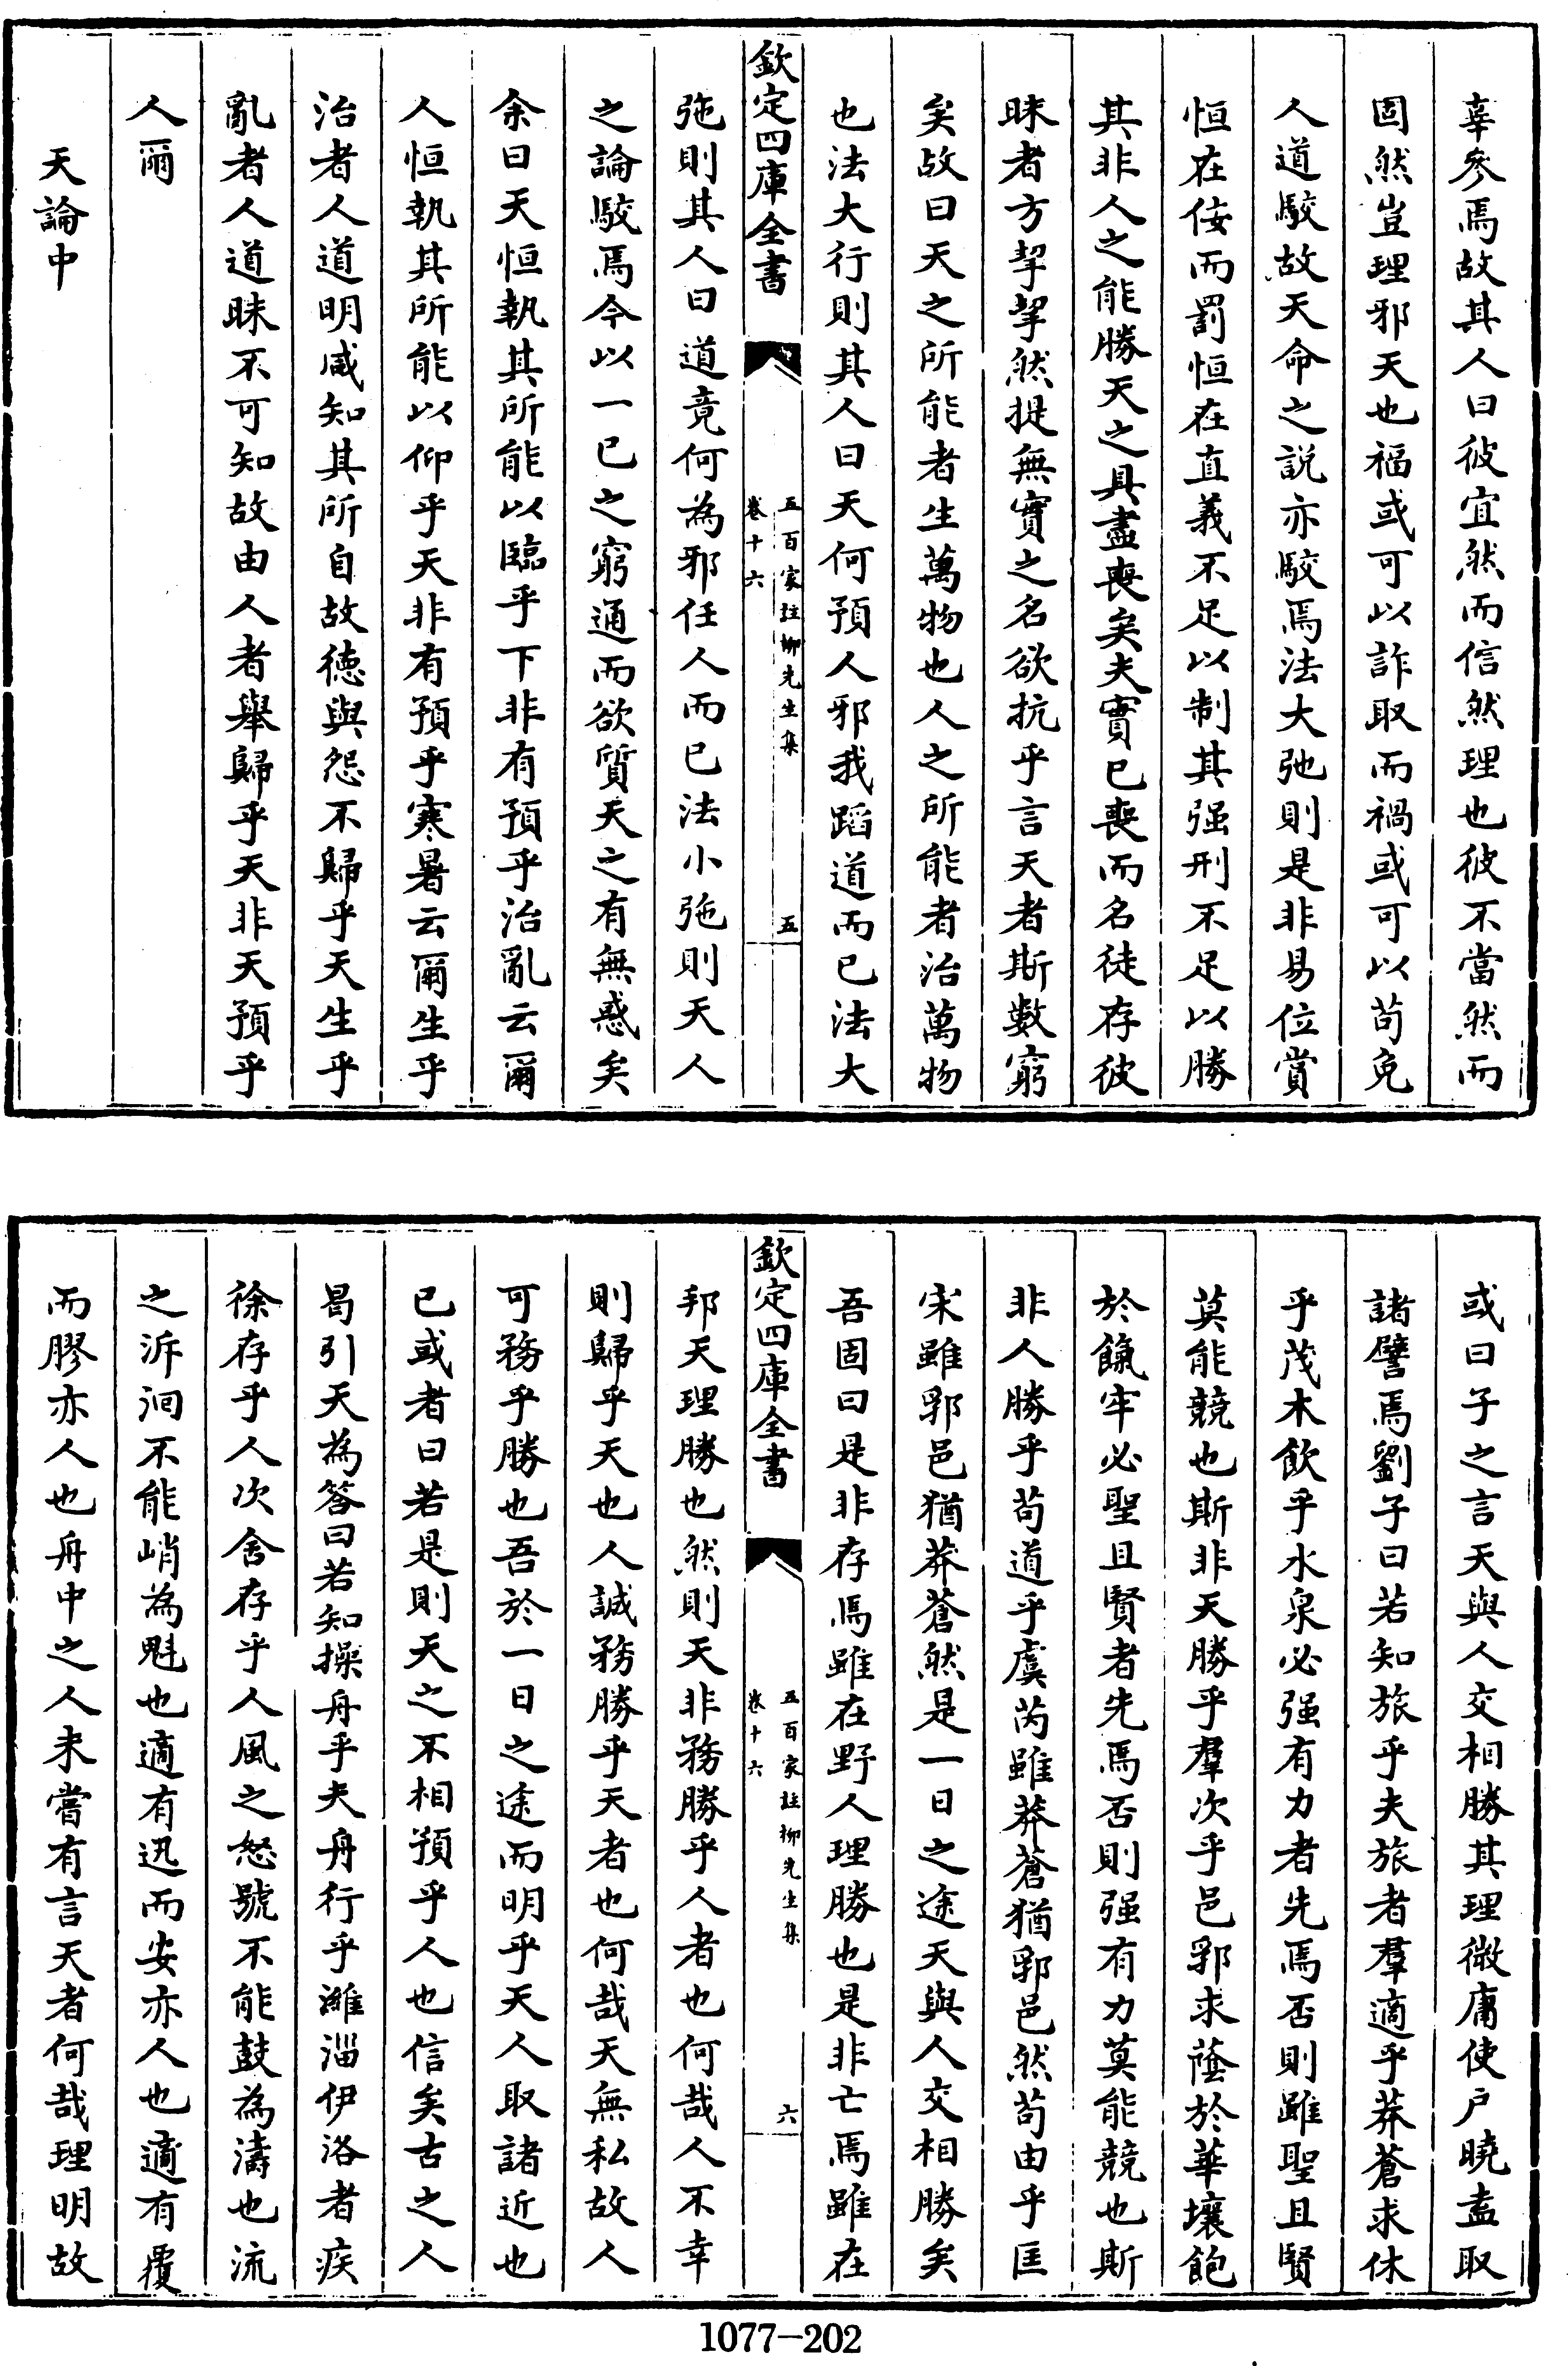 辜參焉故其人曰彼宜然而信然理也彼不當然而
固然豈理邪天也福或可以詐取而禍或可以茍免
人道駮故天命之説亦駮焉法大弛則是非易位賞
恒在佞而罰恒在直義不足以制其强刑不足以勝
其非人之能勝天之具盡喪矣夫實已喪而名徒存彼
昧者方挈挈然提無實之名欲抗乎言天者斯數窮
矣故曰天之所能者生萬物也人之所能者治萬物
也法大行則其人曰天何預人邪我蹈道而已法大
欽定四庫全書
五百家註柳先生集
卷十六
五
弛則其人曰道竟何為邪任人而已法小弛則天人
之論駮焉今以一已之窮通而欲質天之有無惑矣
余曰天恒執其所能以臨乎下非有預乎治亂云爾
人恒執其所能以仰乎天非有預乎寒暑云爾生乎
治者人道明咸知其所自故徳與怨不歸乎天生乎
亂者人道昧不可知故由人者舉歸乎天非天預乎
人爾
天論中
或曰子之言天與人交相勝其理微庸使户曉盍取
諸譬焉劉子曰若知旅乎夫旅者羣適乎莽蒼求休
乎茂木飲乎水泉必强有力者先焉否則雖聖且賢
莫能競也斯非天勝乎羣次乎邑郛求蔭於華壤飽
於餼牢必聖且賢者先焉否則强有力莫能競也斯
非人勝乎苟道乎虞芮雖莽蒼猶郛邑然苟由乎匡
宋雖郛邑猶莽蒼然是一日之途天與人交相勝矣
吾固曰是非存焉雖在野人理勝也是非亡焉雖在
欽定四庫全書
五百家註柳先生集
卷十六
六
邦天理勝也然則天非務勝乎人者也何哉人不幸
則歸乎天也人誠務勝乎天者也何哉天無私故人
可務乎勝也吾於一日之途而明乎天人取諸近也
已或者曰若是則天之不相預乎人也信矣古之人
曷引天為答曰若知操舟乎夫舟行乎濰淄伊洛者疾
徐存乎人次舍存乎人風之怒號不能鼓為濤也流
之泝洄不能峭為魁也適有迅而安亦人也適有覆
而膠亦人也舟中之人未嘗有言天者何哉理明故
1077-202